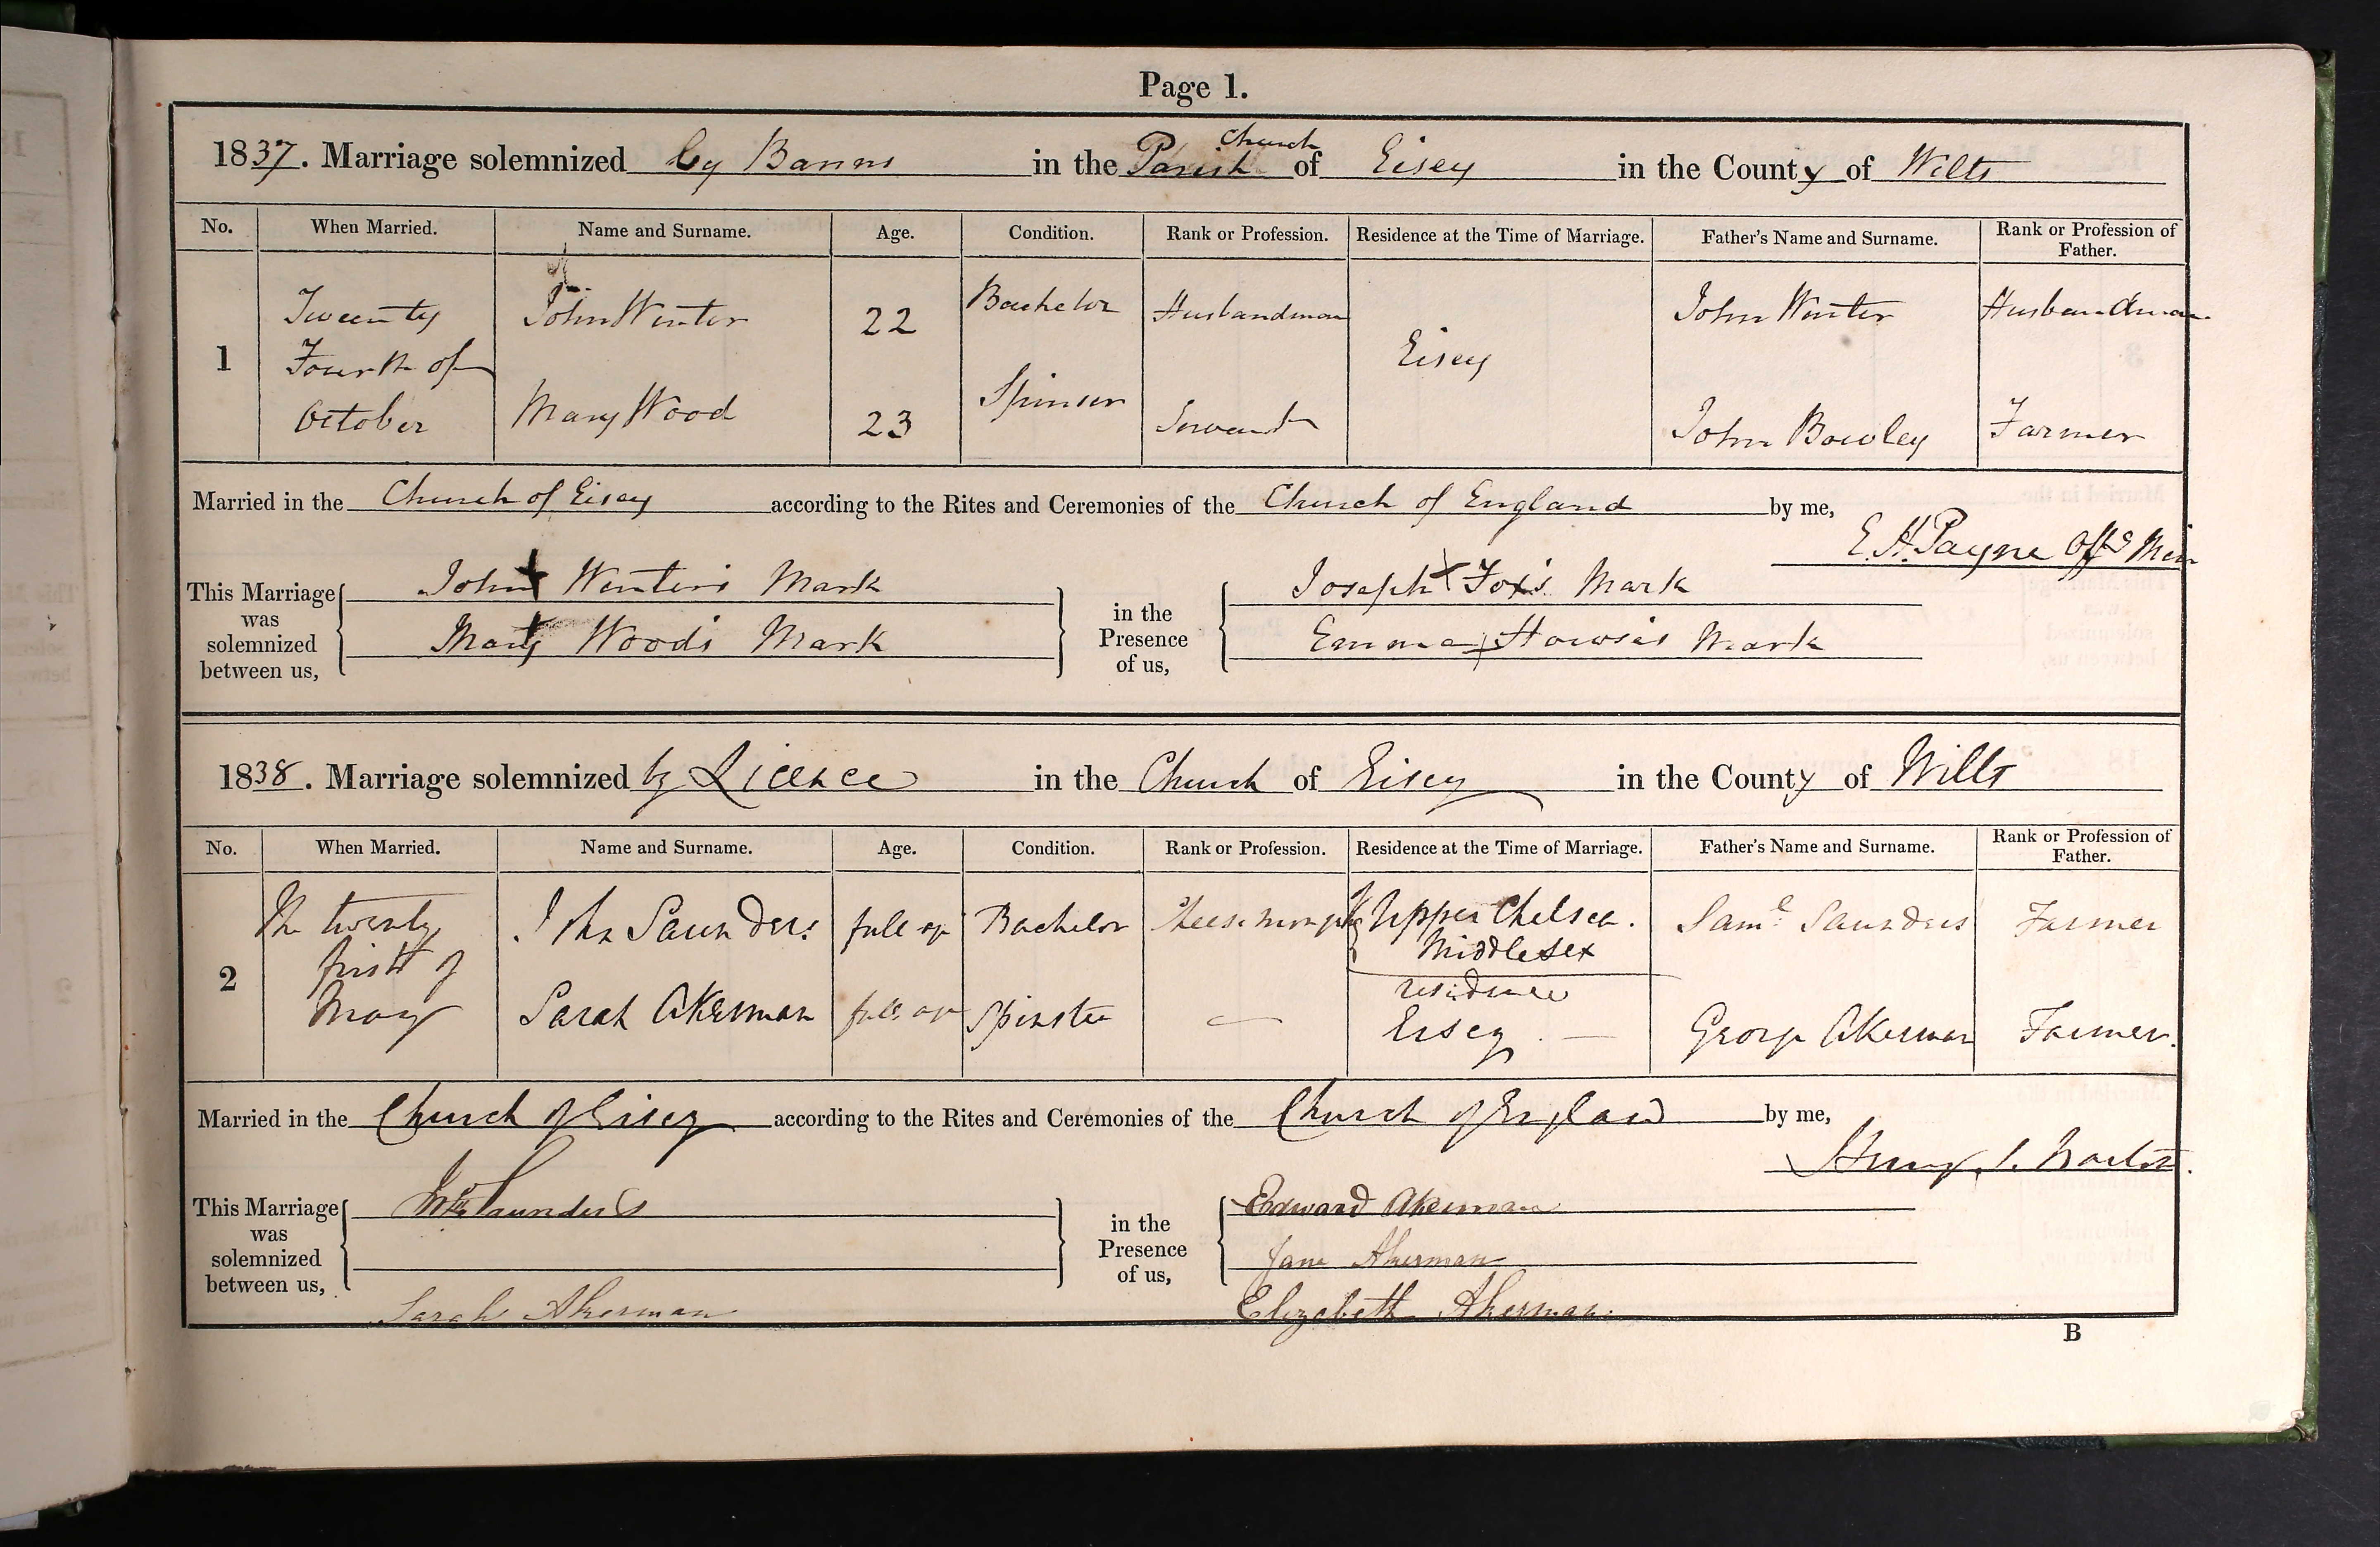 Page 1.
1837. Marriage solemnized by Banns in the Parish Church of Eisey in the County of Wilts
No. When Married. Name and Surname. Age. Condition. Rank or Profession. Residence at the Time of Marriage. Father's Name and Surname. Rank or Profession of Father.
Twenty John Winter 22 Bachelor Husbandman John Winter Husbandman
1 Fourth of Eisey
October Mary Wood 23 Spinser Servant John Bowley Farmer
Married in the Church of Eisey according to the Rites and Ceremonies of the Church of England by me,
E. H. Payne Offg Min
This Marriage was solemnized between us,
John X Winter's Mark
Mary X Wood's Mark
in the Presence of us,
Joseph X Fox's Mark
Emma X Howse's Mark
1838. Marriage solemnized by Licence in the Church of Eisey in the County of Wilts
No. When Married. Name and Surname. Age. Condition. Rank or Profession. Residence at the Time of Marriage. Father's Name and Surname. Rank or Profession of Father.
The twenty John Saunders full age Bachelor Cheesemonger Upper Chelsea. Saml Saunders Farmer
2 first of Middlesex
residence
May Sarah Akerman full age Spinster — Eisey — George Akerman Farmer.
Married in the Church of Eisey according to the Rites and Ceremonies of the Church of England by me,
Henry
This Marriage was solemnized between us,
Jno Saunders
Sarah Akerman
in the Presence of us,
Edward Akerman
Jane Akerman
Elizabeth Akerman
B